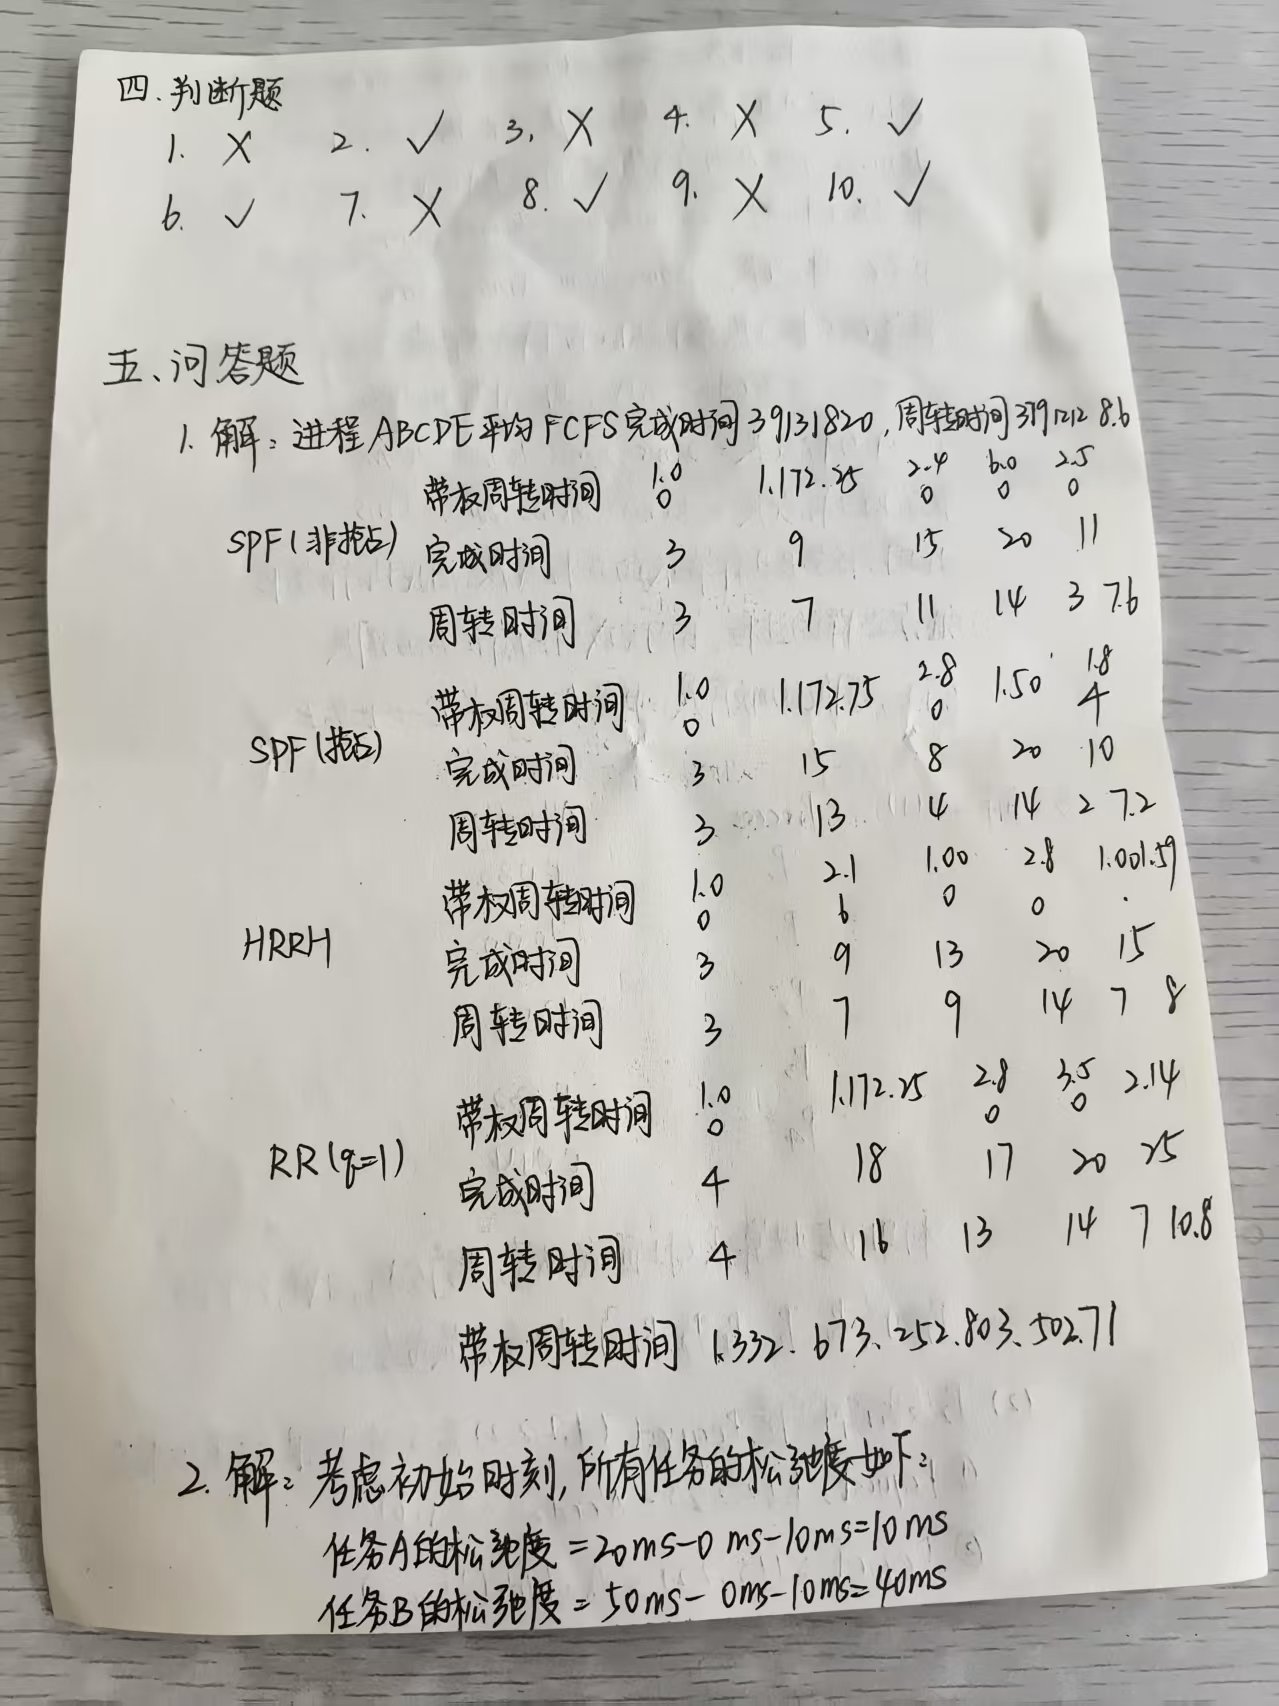 四.判断题
1. X 2. ✓ 3. X 4. X 5. ✓
6. ✓ 7. X 8. ✓ 9. X 10. ✓
五、问答题
1. 解: 进程ABCDE平均FCFS完成时间39131820,周转时间3791212 8.6
带权周转时间 1.0 1.172.25 2.4 6.0 2.5
0 0 0 0
SPF(非抢占) 完成时间 3 9 15 20 11
周转时间 3 7 11 14 3 7.6
带权周转时间 1.0 1.172.75 2.8 1.50 1.8
0 0 4
SPF(抢占) 完成时间 3 15 8 20 10
周转时间 3 13 4 14 2 7.2
带权周转时间 1.0 2.1 1.00 2.8 1.001.59
0 6 0 0
HRRH 完成时间 3 9 13 20 15
周转时间 3 7 9 14 7 8
带权周转时间 1.0 1.172.25 2.8 3.5 2.14
0 0 0
RR(q=1) 完成时间 4 18 17 20 25
周转时间 4 16 13 14 7 10.8
带权周转时间 1.332.673.252.803.502.71
2. 解: 考虑初始时刻,所有任务的松弛度如下:
任务A的松弛度=20ms-0ms-10ms=10ms
任务B的松弛度=50ms-0ms-10ms=40ms